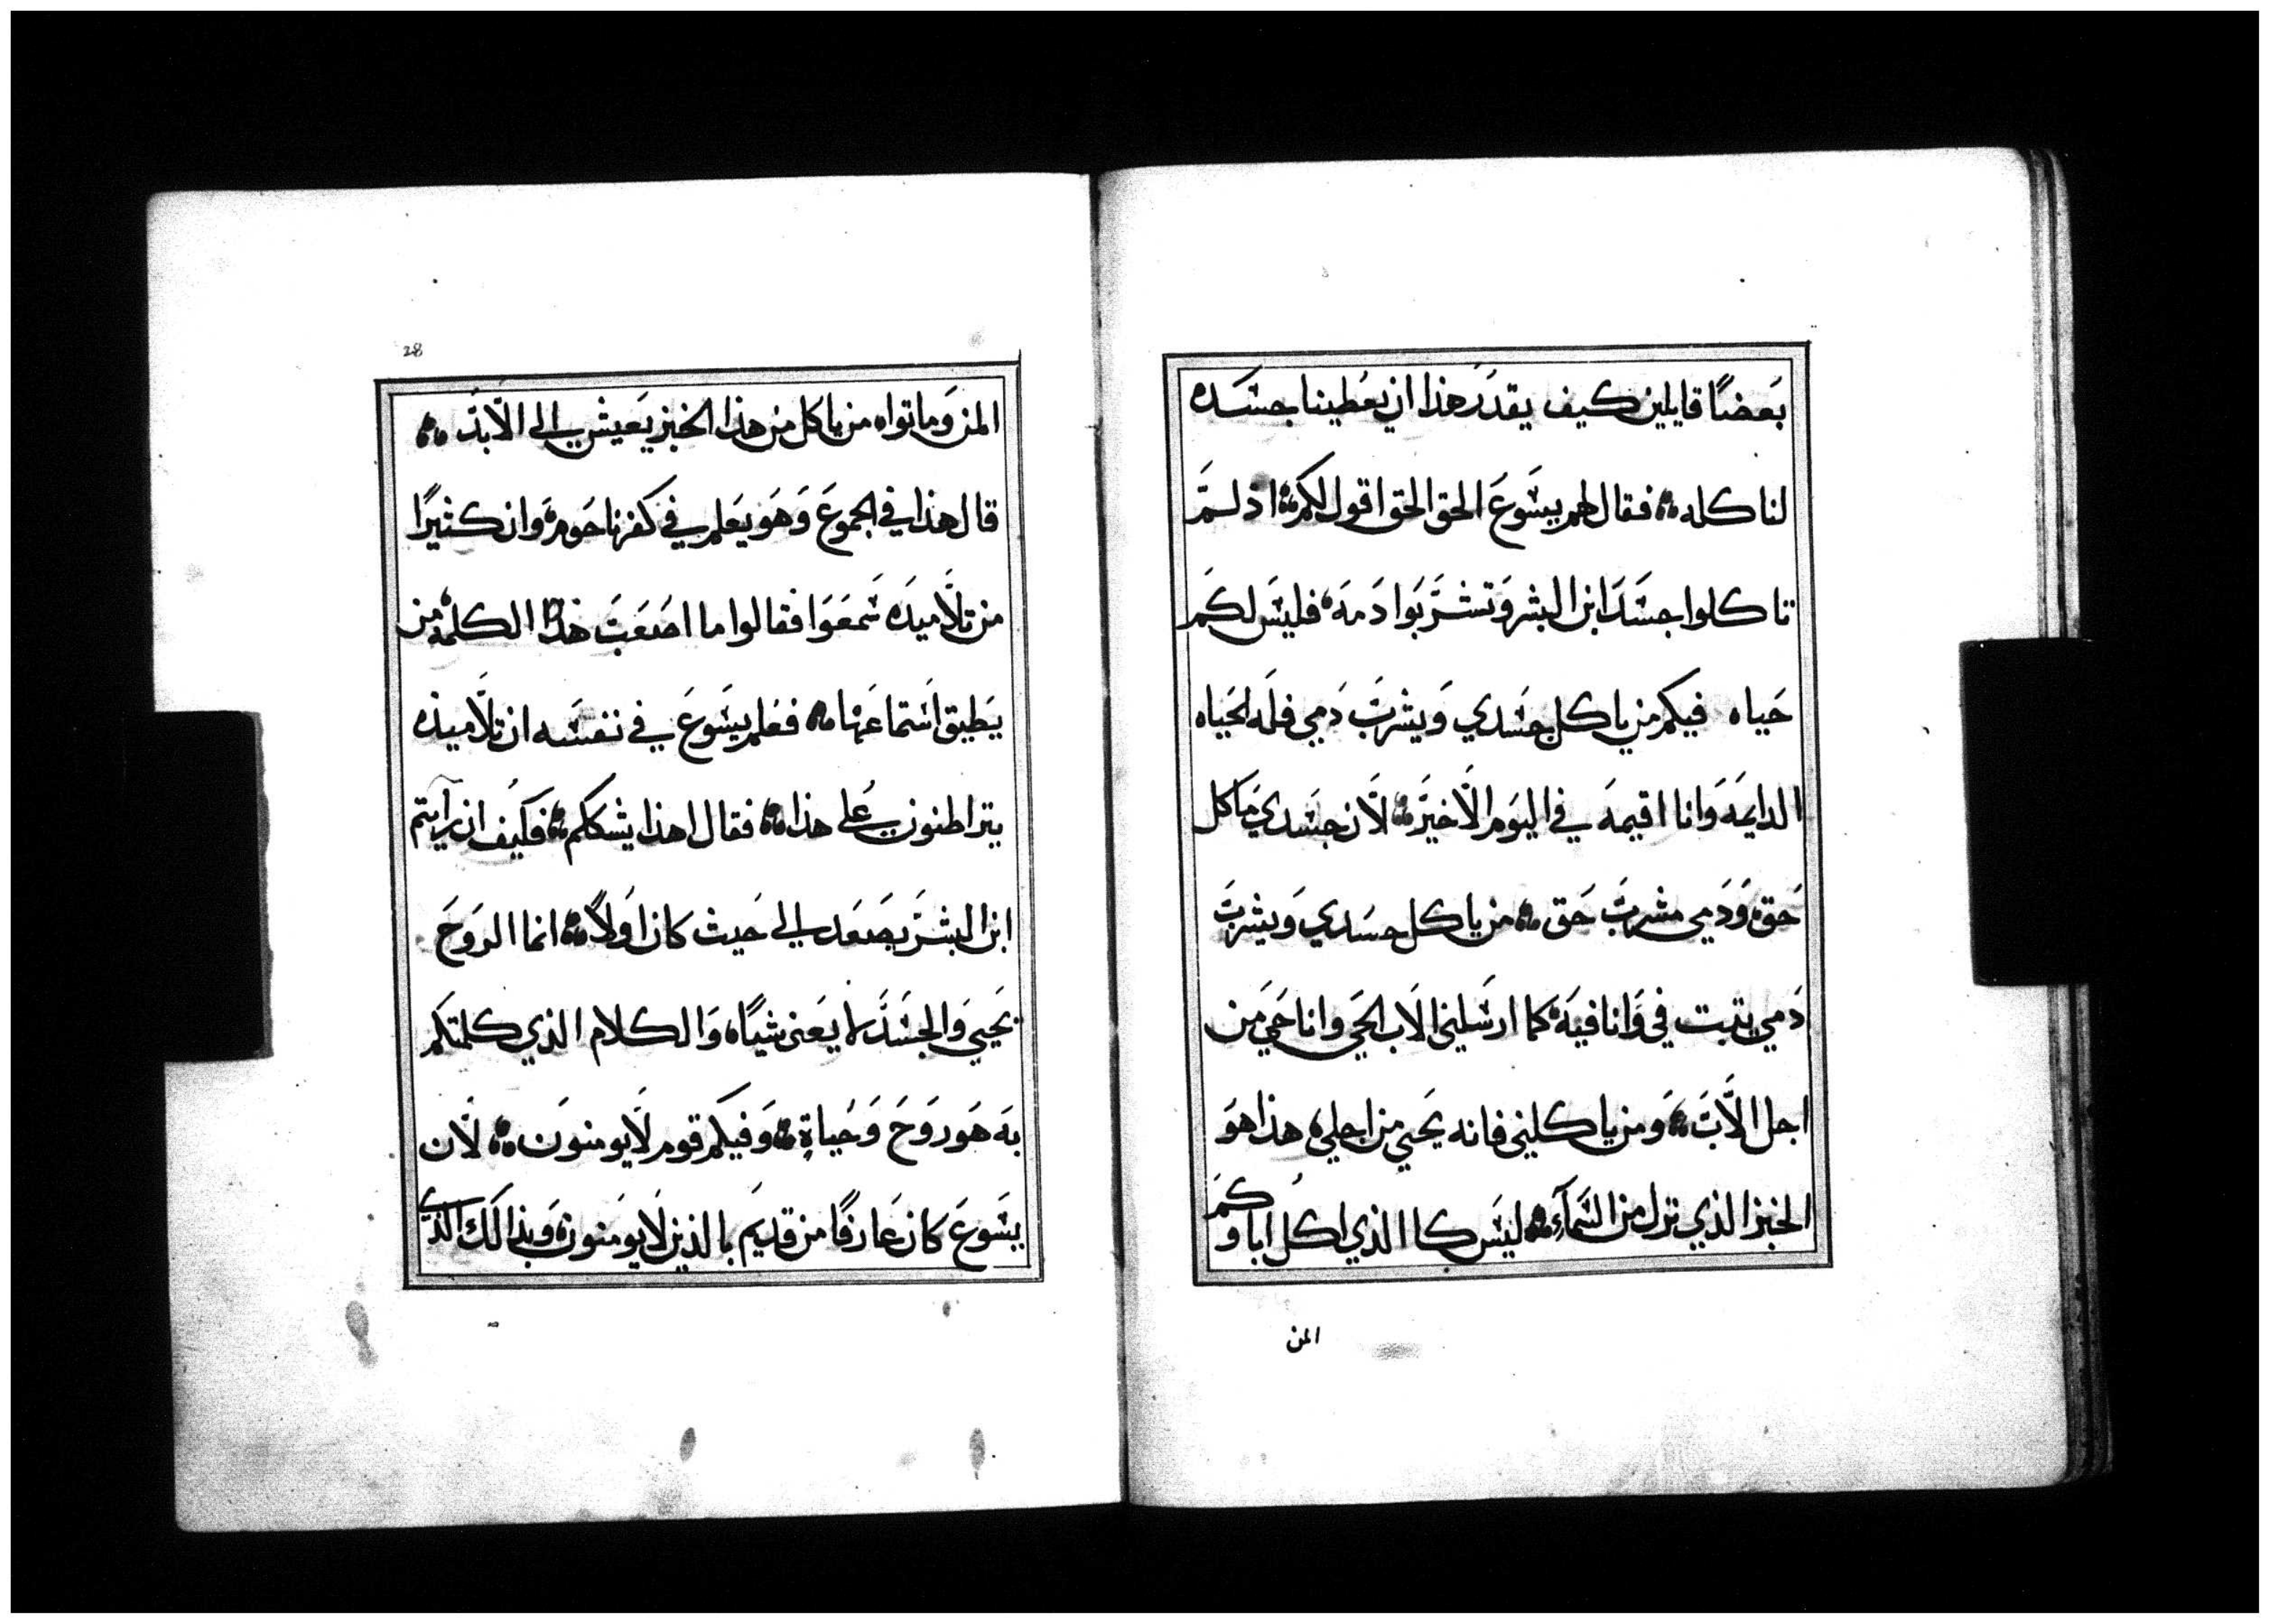 بَعضاً قايلين كيف يقدر هذا ان يعُطينا جسَده
لنا كله فقال لهم يسَوعَ الحق الحق اقول لكم اذ لم
تاكلوا جسَدَ ابن البشر وَتشرَبوا دَمهَ فليسَ لكمَ
حَياه فيكم من ياكل جسَدي وَيشربَ دَمي فلَه الحَياه
الدايمَهَ وَانا اقيمهَ في اليَوم الاخيرَ لان جسَدي مَاكل
حَق وَدَمي مشربَ حَق من ياكل جسَدي وَيشربَ
دَمي يتبت في وَانا فيهَ كما ارسَلني الاب الحَي وانا حَي مَن
اجل الابَ وَمن ياكلني فانه يَحيي من اجلي هذا هوَ
الخبز الذي نزل من السَمآء ليسَ كا الذي اكل اباوكمَ
المن
28
المن وَماتواه من ياكل من هذا الخبز يَعيش الى الابدَ
قال هذا في الجموعَ وَهوَ يعَلم في كفرناحَوم وان كثيرًا
من تلاَميدَه سَمعَوَا فقالوا ما اصَعَبَ هذا الكلمه من
يَطيق اسَتماعَها فعَلم يسَوعَ في نفسَه ان تلاَميذه
يتراطنون عَلى هذا فقال اهذا يشككم فكيَف ان رآيتم
ابن البشرَ يصَعَد الى حَيث كان اوَلاً انما الروَحَ
يَحيي وَالجسَدَ لا يعَنى شياً وَالكلام الذي كلمتكم
بهَ هَو روَحَ وَحَياةٍ وَفيكم قوم لاَ يومنوَن لاَن
يسَوعَ كان عَارفًا من قديَم بالذين لاَ يومَنون وَبذالَك الذي